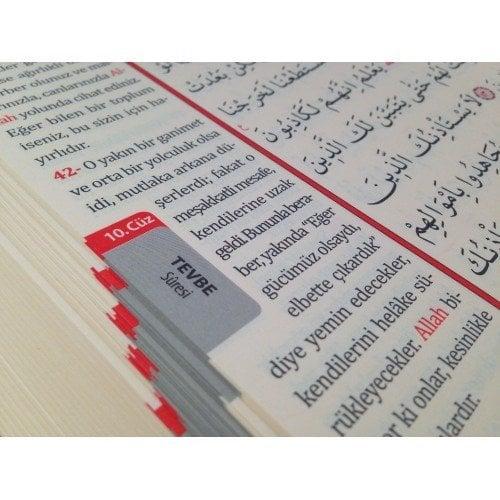 erber olunuz ve ma
rınızla, canlarınızla Al-
lah yolunda cihad ediniz
Eğer bilen bir toplum
iseniz, bu sizin için ha-
yırlıdır.
42- O yakın bir ganimet
ve orta bir yolculuk olsa
idi, mutlaka arkana dü-
şerlerdi; fakat o
meşakkatli mesafe,
kendilerine uzak
geldi. Bununla bera-
ber, yakında "Eğer
gücümüz olsaydı,
elbette çıkardık"
diye yemin edecekler,
kendilerini helâke sü-
rükleyecekler. Allah bi-
er ki onlar, kesinlikle
lardır.
10. Cüz
TEVBE
Sûresi
لَخَرَجْنَا
يَعْلَمُ اِنَّهُمْ لَكَاذِبُونَ
حَتّٰى يَتَبَيَّنَ لَكَ الَّذِينَ
لَا يَسْتَأْذِنُكَ الَّذِينَ
بِاَمْوَالِهِمْ